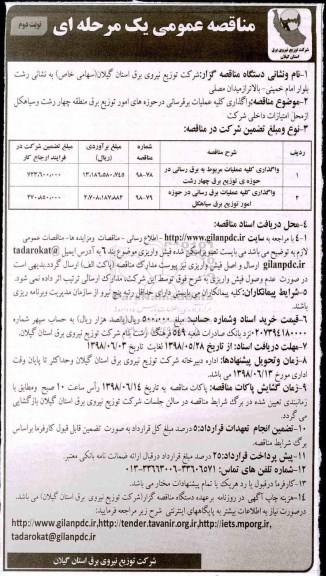 نوبت دوم
مناقصه عمومی یک مرحله ای
شرکت توزیع نیروی برق
استان گیلان
۱-نام ونشانی دستگاه مناقصه گزار:شرکت توزیع نیروی برق استان گیلان(سهامی خاص) به نشانی رشت
بلوار امام خمینی- بالاترازمیدان مصلی
۲-موضوع مناقصه:واگذاری کلیه عملیات برقرسانی درحوزه های امور توزیع برق منطقه چهار رشت وسیاهکل
ازمحل امتیازات داخلی شرکت
۳-نوع ومبلغ تضمین شرکت در مناقصه:
ردیف شرح مناقصه شماره مناقصه مبلغ برآوردی (ریال) مبلغ تضمین شرکت در فرایند ارجاع کار
۱ واگذاری کلیه عملیات مربوط به برق رسانی در حوزه ی توزیع برق چهار رشت ۹۸-۷۸ ۱۳،۱۸۶،۵۸۰،۷۴۵ ۷۳۳،۶۰۰،۰۰۰
۲ واگذاری کلیه عملیات برق رسانی در حوزه امور توزیع برق سیاهکل ۹۸-۷۹ ۲،۷۰۸،۱۸۷،۸۸۲ ۲۷۰،۸۵۰،۰۰۰
۴-محل دریافت اسناد مناقصه:
۴-۱ با مراجعه به سایت http://www.gilanpdc.ir - اطلاع رسانی - مناقصات ومزایده ها- مناقصات عمومی
لازم به توضیح می باشد می بایست تصویراسکن شده فیش واریزی موضوع بند ۶ به آدرس ایمیل tadarokat@
gilanpdc.ir ارسال و اصل فیش واریزی نیز پیوست مدارک مناقصه (پاکت الف) ارسال گردد.بدیهی است
در صورت عدم وصول فیش واریزی به شرح فوق توسط این شرکت، مدارک ارسالی ترتیب اثر داده نمی شود.
۵-شرایط پیمانکاران: کلیه پیمانکاران می بایستی دارای حداقل رتبه پنج نیرو از سازمان مدیریت وبرنامه ریزی
باشند.
۶-قیمت خرید اسناد وشماره حساب: مبلغ ۵۰۰،۰۰۰ ریال(پانصد هزار ریال) به حساب سپهر شماره
۰۲۰۷۳۹۴۱۸۰۰۰ نزد بانک صادرات شعبه ۵۴۹ فرهنگ رشت بنام شرکت توزیع نیروی برق استان گیلان.
۷-مهلت دریافت اسناد: از تاریخ ۱۳۹۸/۰۵/۲۸ لغایت تاریخ ۱۳۹۸/۰۶/۰۳
۸-زمان وتحویل پیشنهادها: اداره دبیرخانه شرکت توزیع نیروی برق استان گیلان وحداکثر تا پایان وقت
اداری مورخ ۱۳۹۸/۰۶/۱۳ می باشد.
۹-زمان گشایش پاکات مناقصه: پاکات مناقصه به تاریخ ۱۳۹۸/۰۶/۱۴ رأس ساعت ۱۰ صبح ومطابق با
زمانبندی تعیین شده در برگ شرایط مناقصه در سالن جلسات شرکت توزیع نیروی برق استان گیلان بازگشایی
می گردد.
۱۰-تضمین انجام تعهدات قرارداد:۵ درصد مبلغ کل قرارداد به صورت تضمین قابل قبول کارفرما براساس
برگ شرایط مناقصه.
۱۱-پیش پرداخت قرارداد:۲۵ درصد مبلغ قرارداد درقبال ارائه ضمانت نامه بانکی معتبر.
۱۲-شماره تلفن های تماس: ۳۳۶۰۶۵۷۱-۳۳۶۶۳۰۰۶-۰۱۳
۱۳-کارفرما درقبول یا رد هریک یا تمام پیشنهادات مختار می باشد.
۱۴-هزینه چاپ آگهی در روزنامه برعهده دستگاه مناقصه گزار(شرکت توزیع نیروی برق استان گیلان) می باشد.
درصورت نیاز به اطلاعات بیشتر به پایگاههای اینترنتی شرح زیر مراجعه فرمایید:
http://www.gilanpdc.ir,http://tender.tavanir.org.ir,http://iets.mporg.ir,
tadarokat@gilanpdc.ir
شرکت توزیع نیروی برق استان گیلان